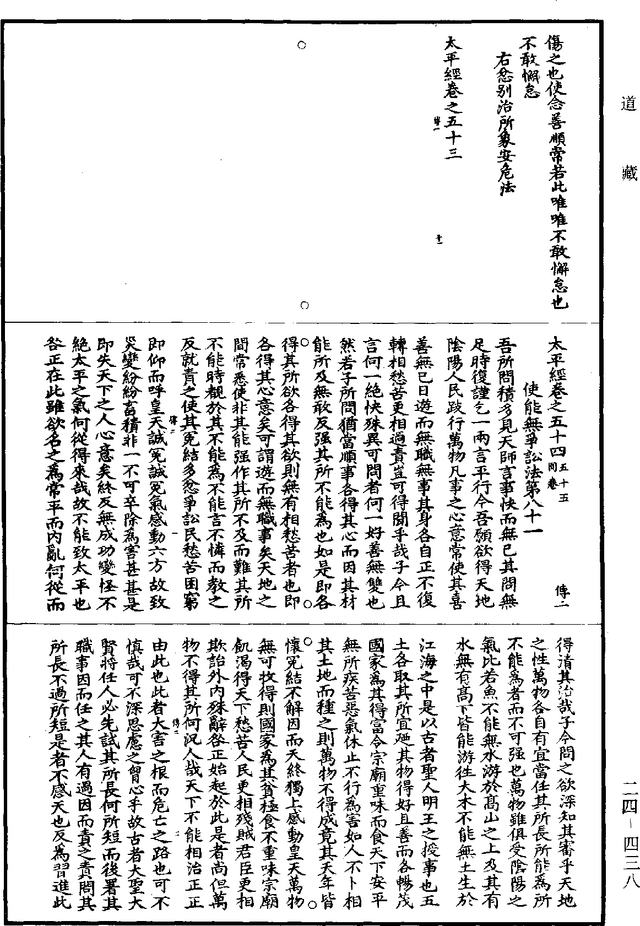 道藏
傷之也使念善順常若此唯唯不敢懈怠也
不敢懈怠
右忿別治所象安危法
太平經卷之五十三
太平經卷之五十四 五十五同卷 傳二
使能無爭訟法第八十一
吾所問積多見天師言事快而無已其問無
足時復謹乞一兩言平行今吾願欲得天地
陰陽人民跂行萬物凡事之心意常使其喜
善無已日遊而無職無事其身各自正不復
轉相愁苦更相過責豈可得聞乎哉子今且
言何一絕快殊異可問者何一好善無雙也
然若子所問猶當順事各得其心而因其材
能所及無敢及強其所不能為也如是即各
得其所欲各得其欲則無有相愁苦者也即
各得其心意矣可謂遊而無職事矣天地之
間常悉使非其能強作其所不及而難其所
不能時覩於其不能為不能言不憐而教之
反就責之使其冤結多忿爭訟民愁苦困窮
即仰而呼皇天誠冤誠冤氣感動六方故致
災變紛紛畜積非一不可卒除為害甚甚是
即失天下之人心意矣終反無成功變怪不
絕太平之氣何從得來哉故不能致太平也
咎正在此雖欲名之為常平而內亂何從而
得清其治哉子今問之欲深知其審乎天地
之性萬物各自有宜當任其所長所能為所
不能為者而不可強也萬物雖俱受陰陽之
氣比若魚不能無水游於高山之上及其有
水無有高下皆能游往大木不能無土生於
江海之中是以古者聖人明王之授事也五
土各取其所宜迺其物得好且善而各暢茂
國家為其得富令宗廟重味而食天下安平
無所疾苦惡氣休止不行為害如人不卜相
其土地而種之則萬物不得成竟其天年皆
懷冤結不解因而夭終獨上感動皇天萬物
無可收得則國家為其貧極食不重味宗廟
飢渴得天下愁苦人民更相殘賊君臣更相
欺詒外內殊辭咎正始起於此是者尚但萬
物不得其所何況人哉天下不能相治正正
由此也此者大害之根而危亡之路也可不
慎哉可不深思慮之胷心乎故古者大聖大
賢將任人必先試其所長何所短而後署其
職事因而任之其人有過因而責之責問其
所長不過所短是者不感天也反為習進此
二四-四三八